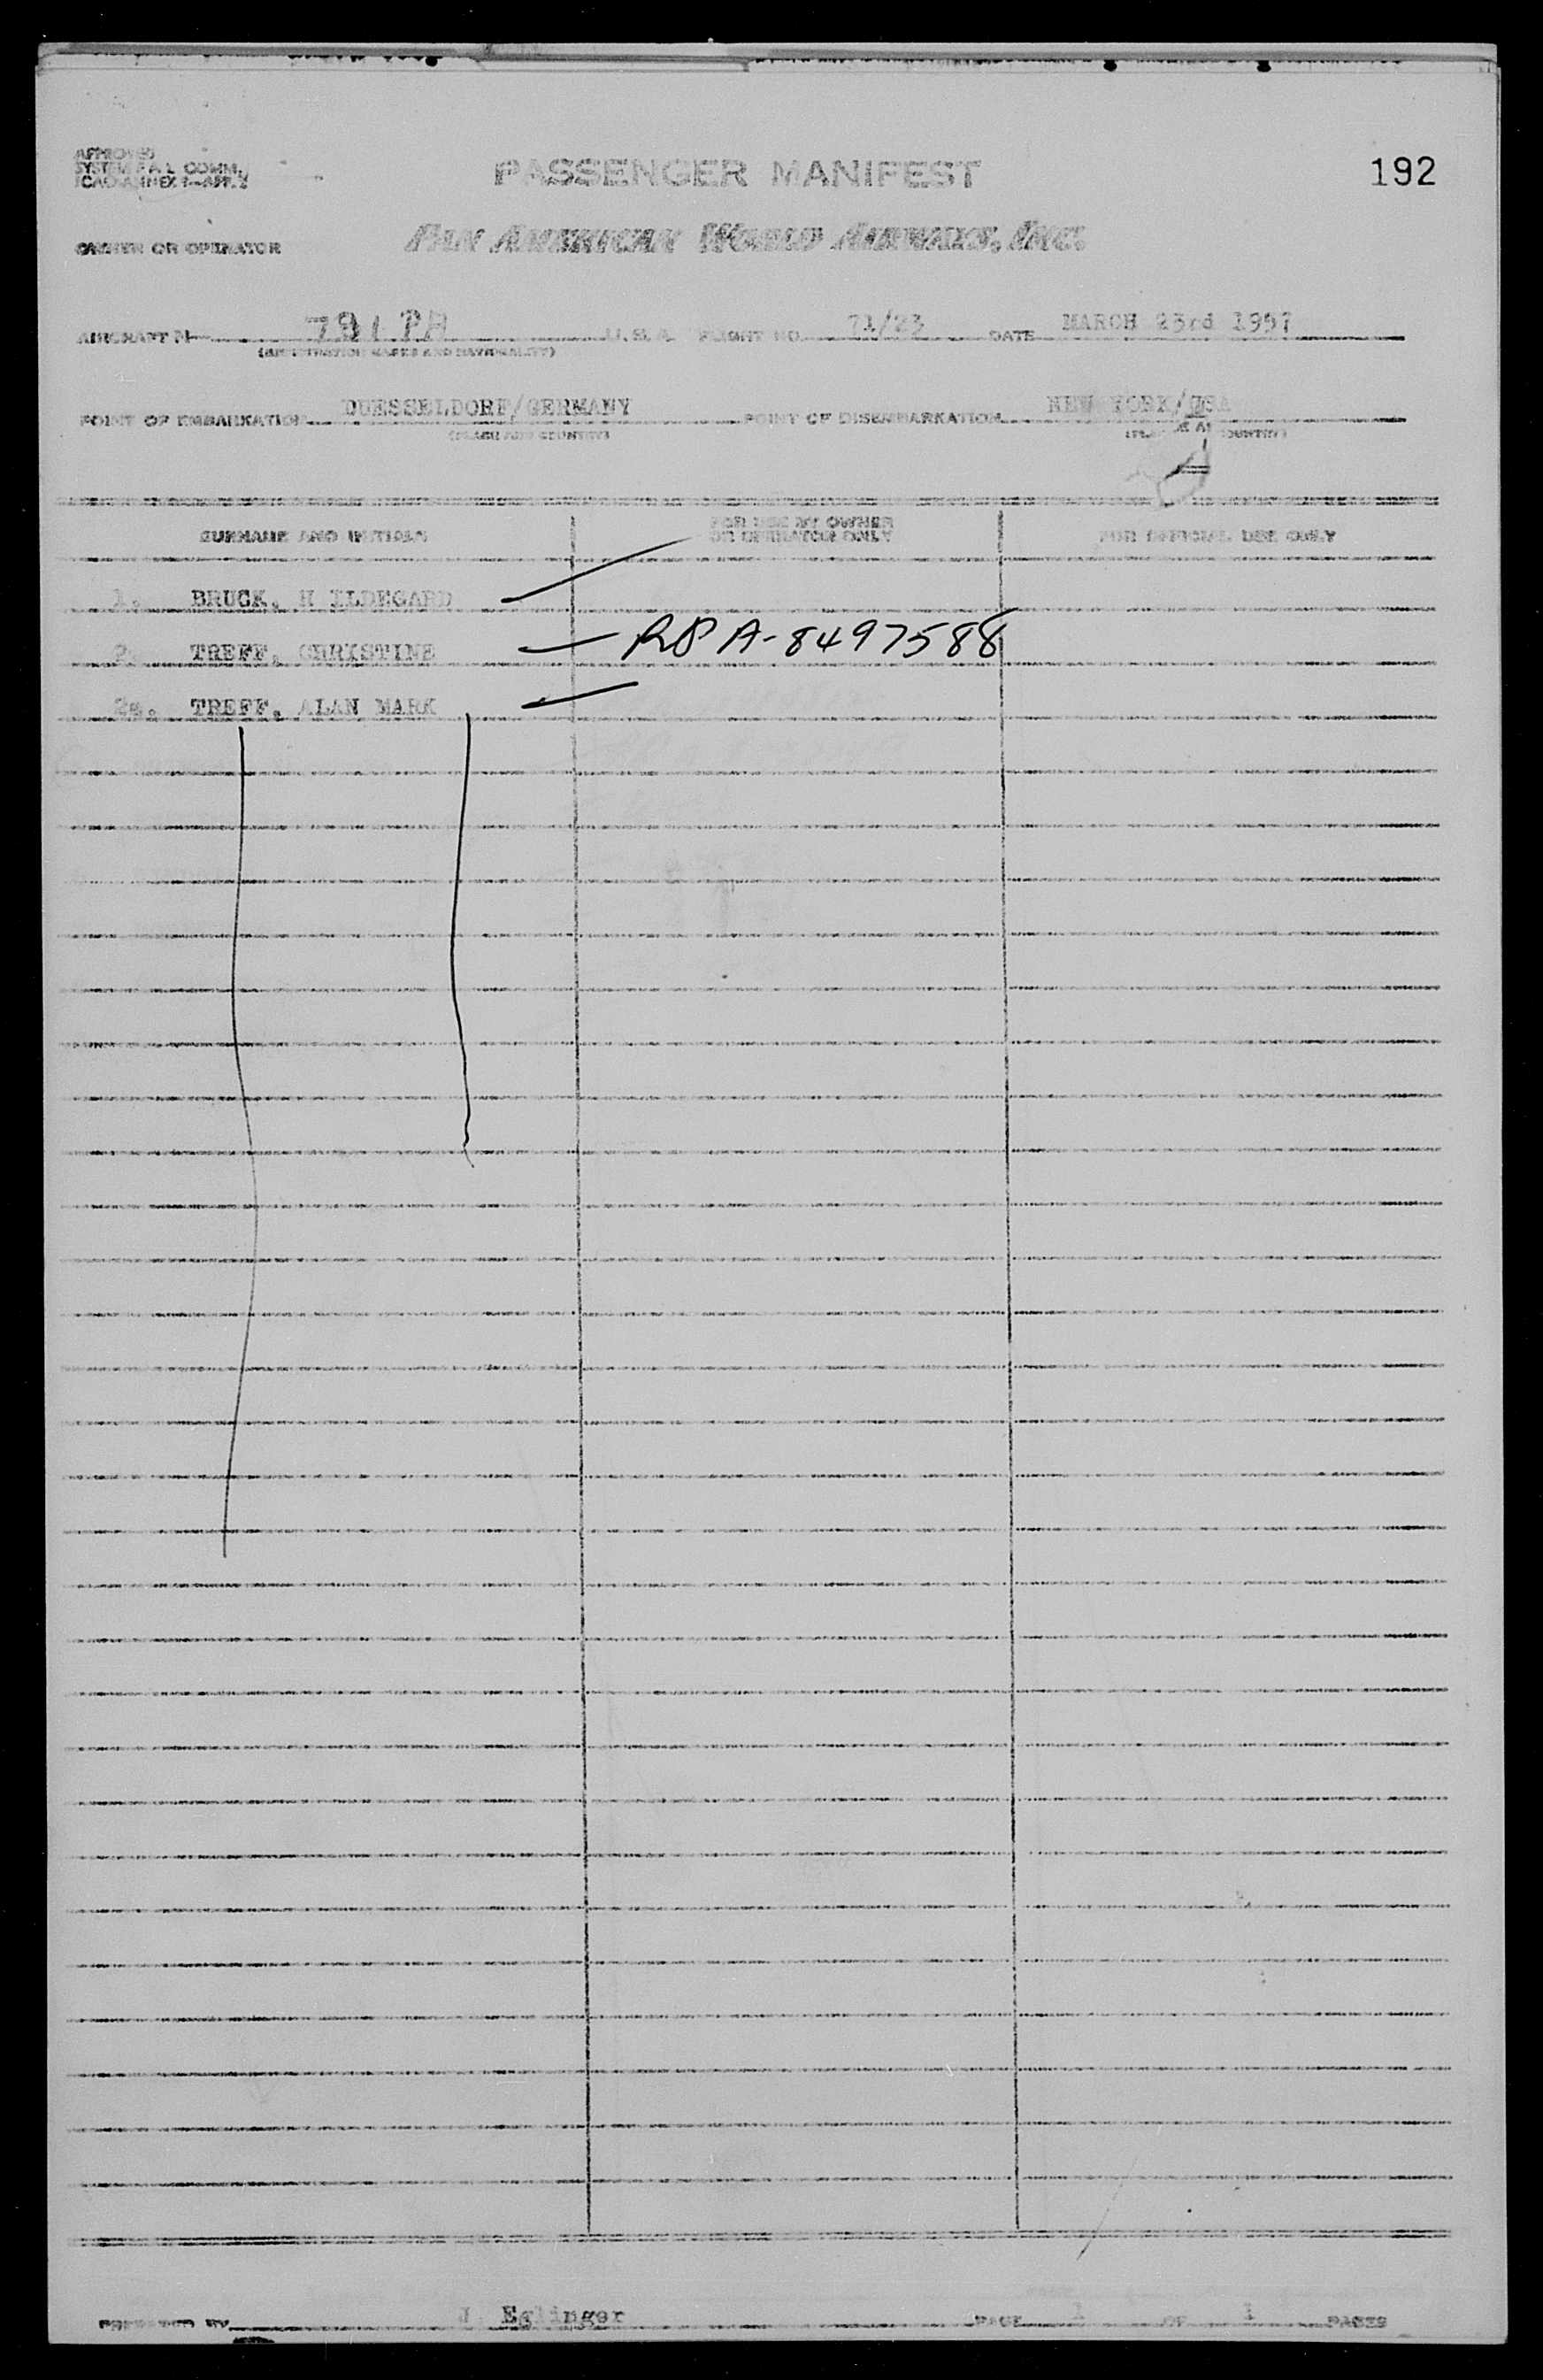 APPROVED
SYSTEM F.A.L. COMM.
ICAO ANNEX 9-APP.
PASSENGER MANIFEST
192
OWNER OR OPERATOR PAN AMERICAN WORLD AIRWAYS, INC.
AIRCRAFT N 791 PA U.S.A. FLIGHT NO. 71/23 DATE MARCH 23rd 1957
(REGISTRATION MARKS AND NATIONALITY)
POINT OF EMBARKATION DUESSELDORF/GERMANY POINT OF DISEMBARKATION NEW YORK/USA
(PLACE AND COUNTRY) COUNTRY)
SURNAME AND INITIALS FOR USE BY OWNER OR OPERATOR ONLY FOR OFFICIAL USE ONLY
1. BRUCK, H ILDEGARD
2. TREFF, CHRISTINE RP A-8497588
2a. TREFF, ALAN MARK
PREPARED BY J. Eglinger PAGE 1 OF 1 PAGES